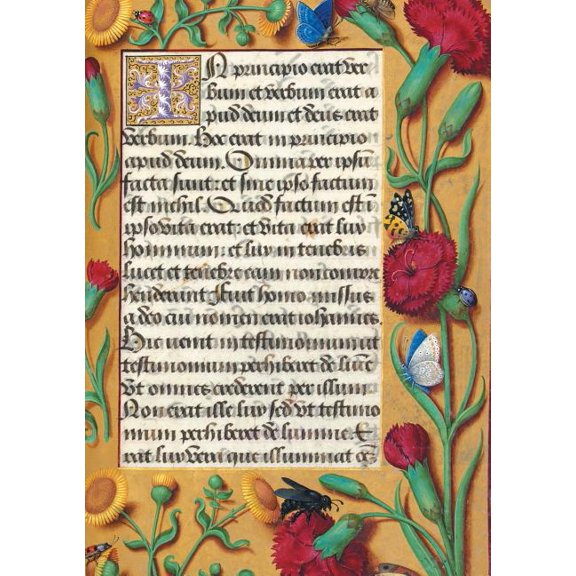 In principio erat ver
bum et verbum erat a
pud deum et deus erat
verbum. Hoc erat in principio
apud deum. Omnia per ipsum
facta sunt: et sine ipso factum
est nichil. Quod factum est in
ipso vita erat: et vita erat lux
hominum: et lux in tenebris
lucet et tenebre eam non compre
henderunt Fuit homo missus
a deo cui nomen erat iohannes.
Hic venit in testimonium ut
testimonium perhiberet de lumine
vt omnes crederent per illum
Non erat ille lux sed vt testimo
nium perhiberet de lumine E
rat lux vera que illuminat